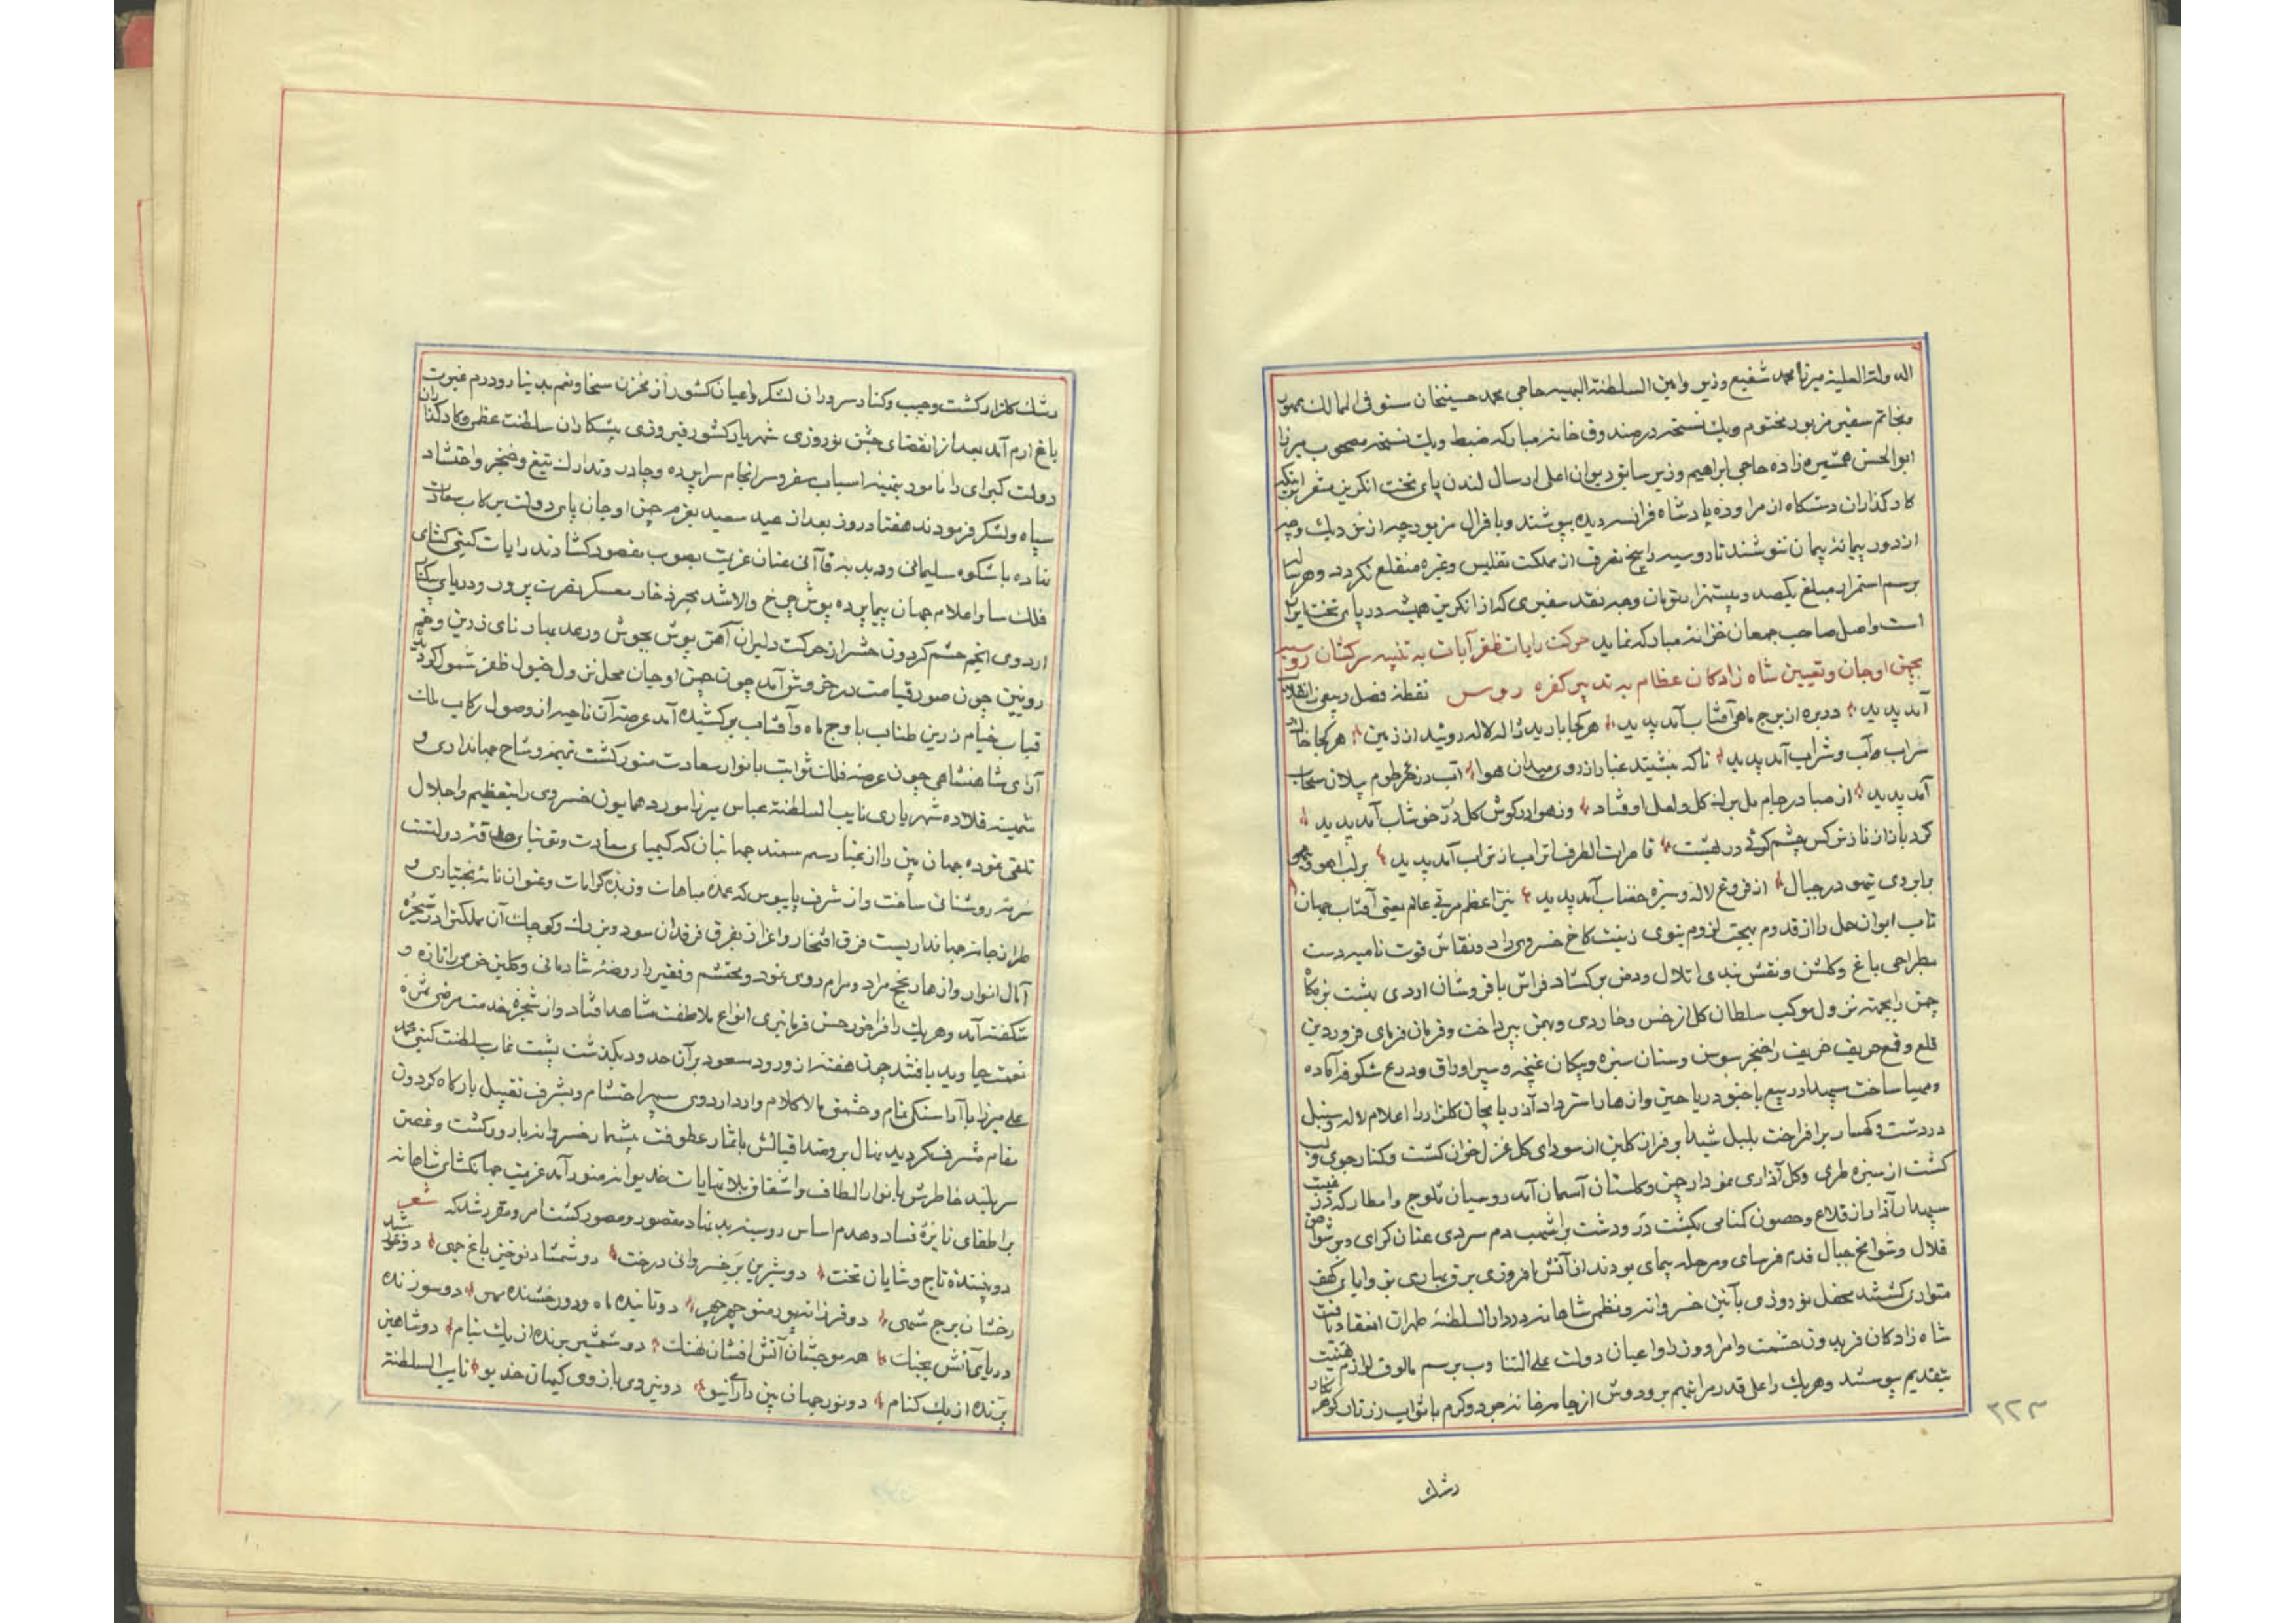 الدولة العلیة میرزا محمد شفیع وزیر وامین السلطنة البهیه حاجی محمد حسینخان مستوفی الممالک ممهور
بخاتم سفیر مزبور مختوم ویک نسخه در صندوق خانه مبارکه ضبط ویک نسخه مصحوب میرزا
ابوالحسن همشیره زاده حاجی ابراهیم وزیر سابق دیوان اعلی ارسال لندن پای تخت انگریز مقرر اینکه
کارگذاران دستگاه از مراوده پادشاه فرانسه دیده بپوشند وبا قرال مزبور چه از نزدیک وچه
از دور پیمانه پیمان ننوشند تا روسیه را بیخ تصرف از مملکت تفلیس وغیره منقلع نکردد وهر ساله
برسم استمرار مبلغ یکصد وبیست هزار تومان وجه نقد سفیری که از انکریز همیشه در پای تخت ایران
است واصل صاحب جمعان خزانه مبارکه نماید حرکت رایات ظفر آیات به تنبیه سرکشان روسیه
بچمن اوجان وتعیین شاه زادکان عظام به تدبیر کفره روس نقطه فصل ربیعی
آمد پدید دربره از برج ماهی آفتاب آمد پدید هر کجا بارید ژاله لاله روئید از زمین هر کجا
سراب وآب وشراب آمد پدید تا که بنشیند غبار از روی میدان هوا آب در خرطوم پیلان سحاب
آمد پدید از صبا در جام مل برک کل ولعل اوفتاد وز هوا در کوش کل دُرّ خوشاب آمد پدید
کرد باز از ناز نرکس چشم کوئی در بهشت قاصرات الطرف اتراب از تراب آمد پدید بر لب اهو
برابروی تیهو در جبال از فروغ لاله وسبزه خضاب آمد پدید نیّر اعظم مربّی عالم یعنی آفتاب جهان
تاب ایوان حمل را از قدوم بهجت لزوم بنوی زینت کاخ خسروی داد ونقاش قوت نامیه دست
بطراحی باغ وکلشن ونقش بندی اتلال ودمن برکشاد فراش بافروشان اردی بهشت بزمگاه
چمن را بجهته نزول موکب سلطان کل از خس وخار دی وبهمن بپرداخت وفرمان فرمای فروردین
قلع وقمع حریف خریف را خنجر سوسن وسنان سبزه وپیکان غنچه وسپر اوراق ودرع شکوفه آماده
ومهیا ساخت سپهدار ربیع با جنود ریاحین وازهار باسترداد آذربایجان کلزار را اعلام لاله وسنبل
در دشت وکهسار برافراخت بلبل شیدا بر فراز کلبن از سودای کل غزل خوان کشت وکنار جوی ولب
کشت از سبزه طری وکل آذاری نمودار چمن وکلستان آسمان آمد روسیان ثلوج وامطار که
سپهدار آذار از قلاع وحصون کنامی بکشت در ودشت براشهب دم سردی عنان کرای وبر شواهق
قلال وشوامخ جبال قدم فرسای ومرحله پیمای بودند از آتش افروزی برق بهاری بزوایای کهف
متواری کشتند محفل نوروزی بآئین خسروانه ونظمی شاهانه در دارالسلطنه طهران انعقاد یافت
شاه زادکان فریدون حشمت وامرا ووزرا واعیان دولت علی التناوب برسم مألوف لوازم تهنیت
بتقدیم پیوستند وهر یک را علی قدر مراتبهم بر ودوش از جامه خانه جود وکرم باثواب زرتار کوهر نکار
رشک
۳۲۳
رشک کلزار کشت وجیب وکنار سرداران لشکر واعیان کشور از مخزن سخا ونعم بدینار ودرم غیرت
باغ ارم آمد بعد از انقضای جشن نوروزی شهریار کشور فیروزی پیشکاران سلطنت عظمی وکارگذاران
دولت کبرای را مامور بتهیه اسباب سفر وسرانجام سراپرده وچادر وتدارک تیغ وخنجر واحتشاد
سپاه ولشکر فرمودند هفتاد روز بعد از عید سعید بعزم چمن اوجان پای دولت برکاب سعادت
نهاده با شکوه سلیمانی ودبدبه قاآنی عنان عزیمت بصوب مقصود کشادند رایات کیتی کشای
فلک سا واعلام جهان پیما پرده پوش چرخ والا شد بحر ذخار معسکر نصرت پرور ودریای بیکنار
اردوی انجم حشم کردون حشر از حرکت دلیران آهن پوش بجوش ورعد مبار نای زرین وخم
رویین چون صور قیامت در خروش آمد چون چمن اوجان محل نزول خیول ظفر شمول کردید
قباب خیام زرین طناب با وج ماه وآفتاب برکشیده آمد عرصه آن ناحیه از وصول رکاب ملک
آرای شاهنشاهی چون عرصه فلک ثوابت بانوار سعادت منور کشت تمیمه وشاح جهانداری و
ثمینه قلاده شهریاری نایب السلطنة عباس میرزا مورد همایون خسروی را بتعظیم واجلال
تلقی نموده جهان بین را از غبار سم سمند جهانبان که کیمیای سعادت وتوتیای حدقه دولتست
سرمه روشنائی ساخت واز شرف پایبوس که عمده مباهات وزبده کرامات وعنوان نامه بختیاری و
طراز جامه جهانداریست فرق افتخار واعزاز بفرق فرقدان سود وبزرک وکوچک آن مملکترا از شجره
آمال انوار وازهار نجح مراد ومرام روی نمود ومحتشم وفقیر را روضه شادمانی وکلبن خرمی را تازه و
شکفته آمد وهر یک را فراخور حسن فرمانبری انواع ملاطفت مشاهد افتاد واز شجره خدمت مرضی ثمره
نعمت جاوید یافتند چون هفته از ورود مسعود بر آن حدود بکذشت پشت نمای سلطنت کیتی محمد
علی میرزا با آراستکی تمام وحشمتی مالاکلام وارد اردوی سپهر احتشام وبشرف تقبیل بارکاه کردون
مقام مشرف کردید نهال برومند اقبالش باثمار عطوفت بیشمار خسروانه بارور کشت وغصن
سربلند خاطرش بانوار الطاف واشفاق بلانهایات خدیوانه منور آمد عزیمت جهانکشای شاهانه
براطفای نایره فساد وهدم اساس روسیه بدنهاد مقصور ومحصور کشت امر ومقرر شد که شعر
دو پنبده تاج وشایان تخت دو شیرین بر خسروانی درخت دو شمشاد نوخیز باغ جمی دو
رخشان برج شهی دو فرزانه پور منوچهر چهر دو تابنده ماه ودو رخشنده مهر دو سوزنده
دریای آتش بجنک همه موجشان آتش افشان نهنک دو شمشیر برنده از یک نیام دو شاهین
پرّنده از یک کنام دو نور جهان بین دارای نیو دو نیروی بازوی کیهان خدیو نایب السلطنة